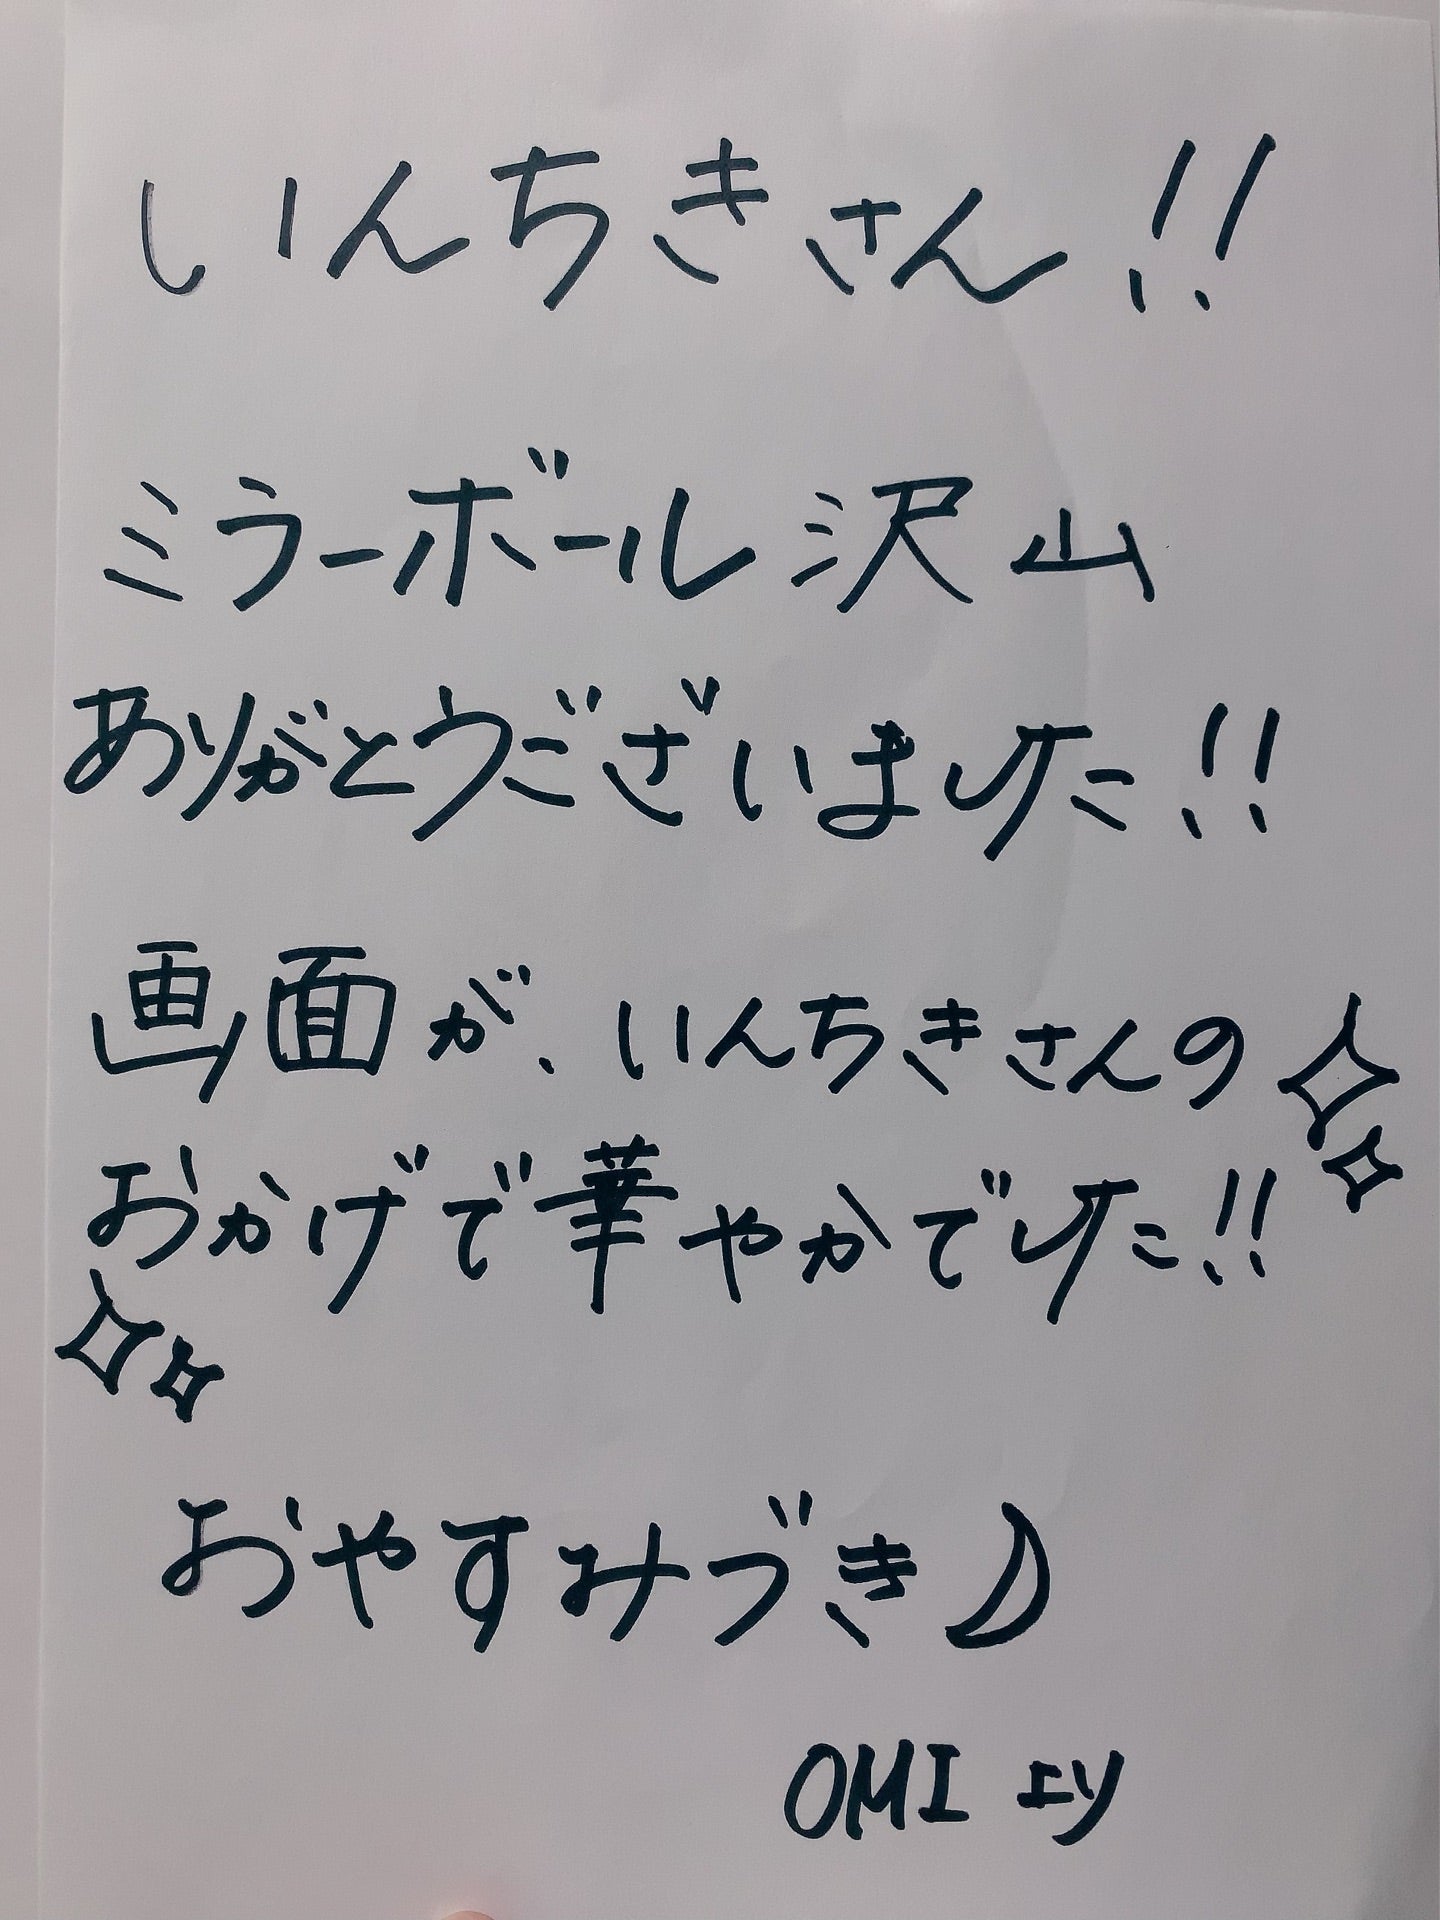 いんちきさん!!
ミラーボール沢山
ありがとうございました!!
画面が、いんちきさんの
おかげで華やかでした!!
おやすみづき
OMI エリ